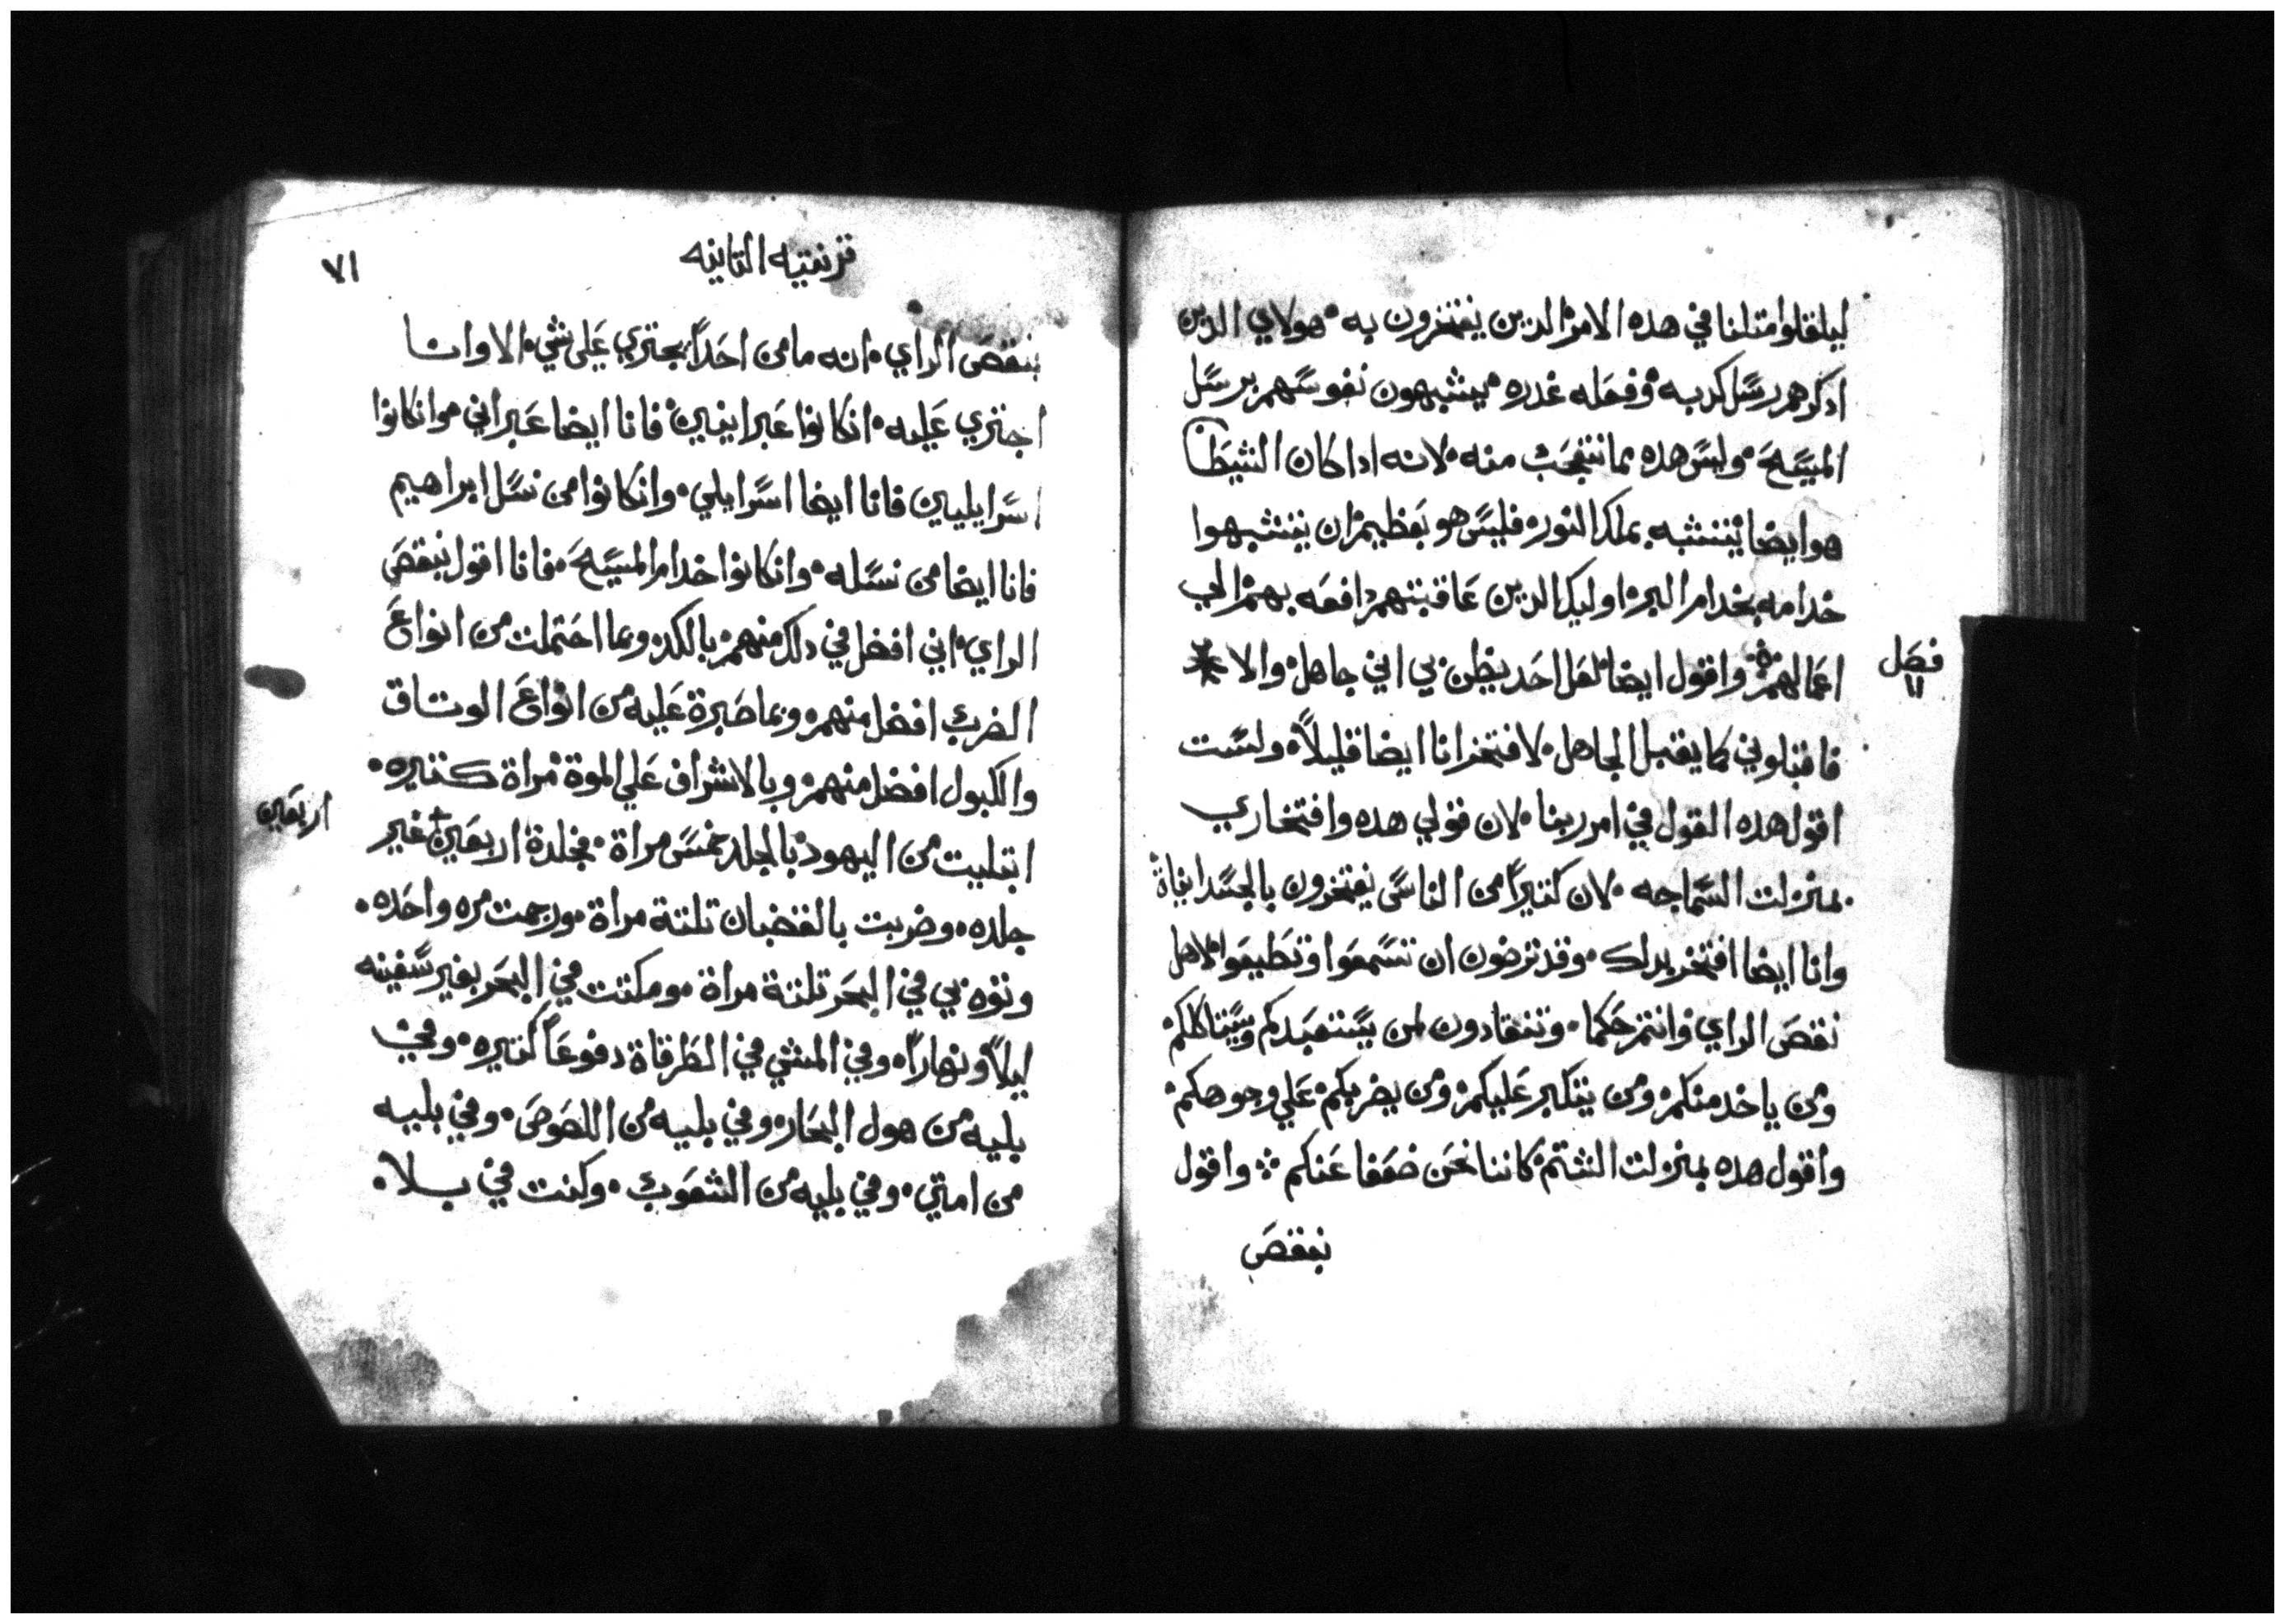 ليلقلوا متلنا في هده الامر الدين يفتخرون به هولاي الدين
ادكرهم رسل كدبه وفعله غدره يشبهون نفوسهم برسل
المسيح وليس هده مما نتعجب منه لانه اداكان الشيطان
هو ايضا يتشبه بملك النور فليس هو بعظيم ان يتشبهوا
خدامه بخدام البر اوليك الدين عاقبتهم دافعه بهم الي
فصل
١١
اعمالهم واقول ايضا لعل احد يظن بي اني جاهل والا
فاقبلوني كما يقبل الجاهل لافتخر انا ايضا قليلاً ولست
اقول هده القول في امر ربنا لان قولي هده وافتخاري
بمنزلت السماجه لان كتيراً من الناس يفتخرون بالجسدانياة
وانا ايضا افتخر بدلك وقد ترضون ان تسمعوا وتطيعوا لاهل
نقص الراي وانتم حكما وتنقادون لمن يستعبدكم ويستاكلكم
ومن ياخد منكم ومن يتكبر عليكم ومن يضربكم علي وجوهكم
واقول هده بمنزلت الشتم كاننا نحن ضعفا عنكم واقول
بنقص
قرنتيه التانيه
٧١
بنقص الراي انه مامن احداً يجتري علي شي الا وانا
اجتري عليه انكانوا عبرانيين فانا ايضا عبراني وانكانوا
اسرايليين فانا ايضا اسرايلي وانكانوا من نسل ابراهيم
فانا ايضا من نسله وانكانوا خدام المسيح فانا اقول بنقص
الراي اني افضل في دلك منهم بالكد وبما احتملت من انواع
الضرب افضل منهم وبما صبرة عليه من انواع الوتاق
والكبول افضل منهم وبالاشراف علي الموة مراة كتيره
ابتليت من اليهود بالجلد خمس مراة فجلدة اربعين غير
اربعين
جلده وضربت بالقضبان تلتة مراة ورجمت مره واحده
ونوه بي في البحر تلتة مراة ومكتت في البحر بغير سفينه
ليلاً ونهاراً وفي المشي في الطرقاة دفوعاً كتيره وفي
بليه من هول البحار وفي بليه من اللصوص وفي بليه
من امتي وفي بليه من الشعوب وكنت في بلا